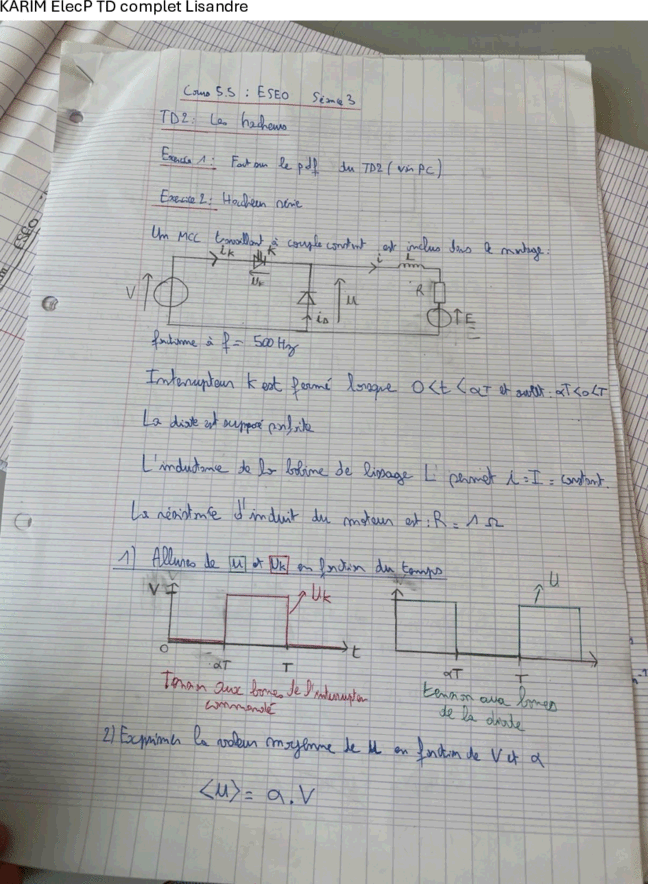 KARIM ElecP TD complet Lisandre
Cours 5.5 : ESEO Séance 3
TD2: Les hacheurs
Exercice 1: Fait sur le pdf du TD2 (voir PC)
Exercice 2: Hacheur série
Un MCC travaillant à couple constant est inclus dans le montage:
ik K i L
V uk u R
iD E
fonctionne à f = 500 Hz
Interrupteur K est fermé lorsque 0<t<αT et ouvert: αT<0<T
La diode est supposé parfaite
L'inductance de la bobine de lissage L permet i = I = constant.
La résistance d'induit du moteur est: R = 1 Ω
1) Allures de u et Uk en fonction du temps
V Uk U
0 αT T t αT T
Tension aux bornes de l'interrupteur
commandé
tension aux bornes
de la diode
2) Exprimer la valeur moyenne de u en fonction de V et α
<u> = α.V